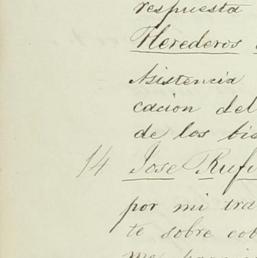 respuesta
Herederos
Asistencia
cacion del
de los bi
14 Jose Rufi
por mi tra
te sobre cob